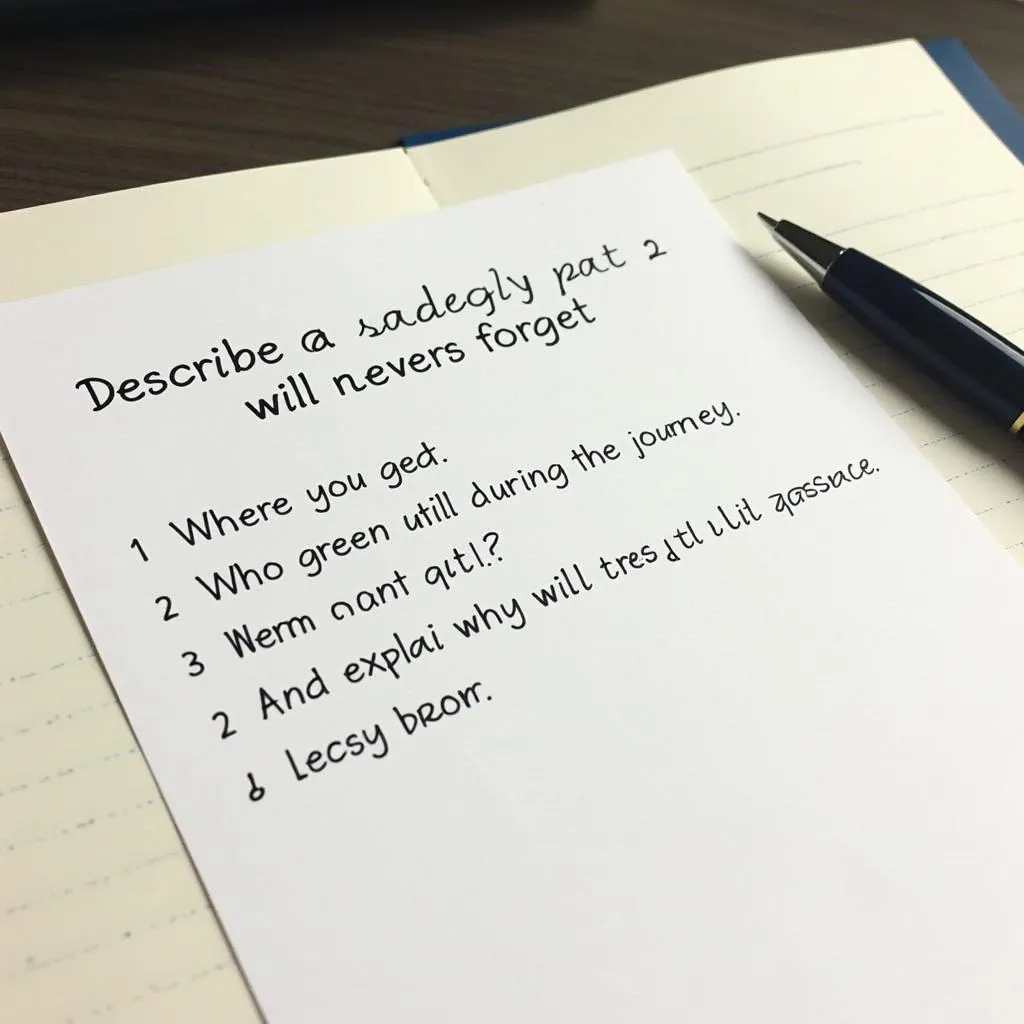 Describe a sadegly pat 2
will nevers forget
1 Where you ged.
2 Who green utill during the journey.
3 Werm nant qitl.?
2 And explai why will tres
Lecsy bror.